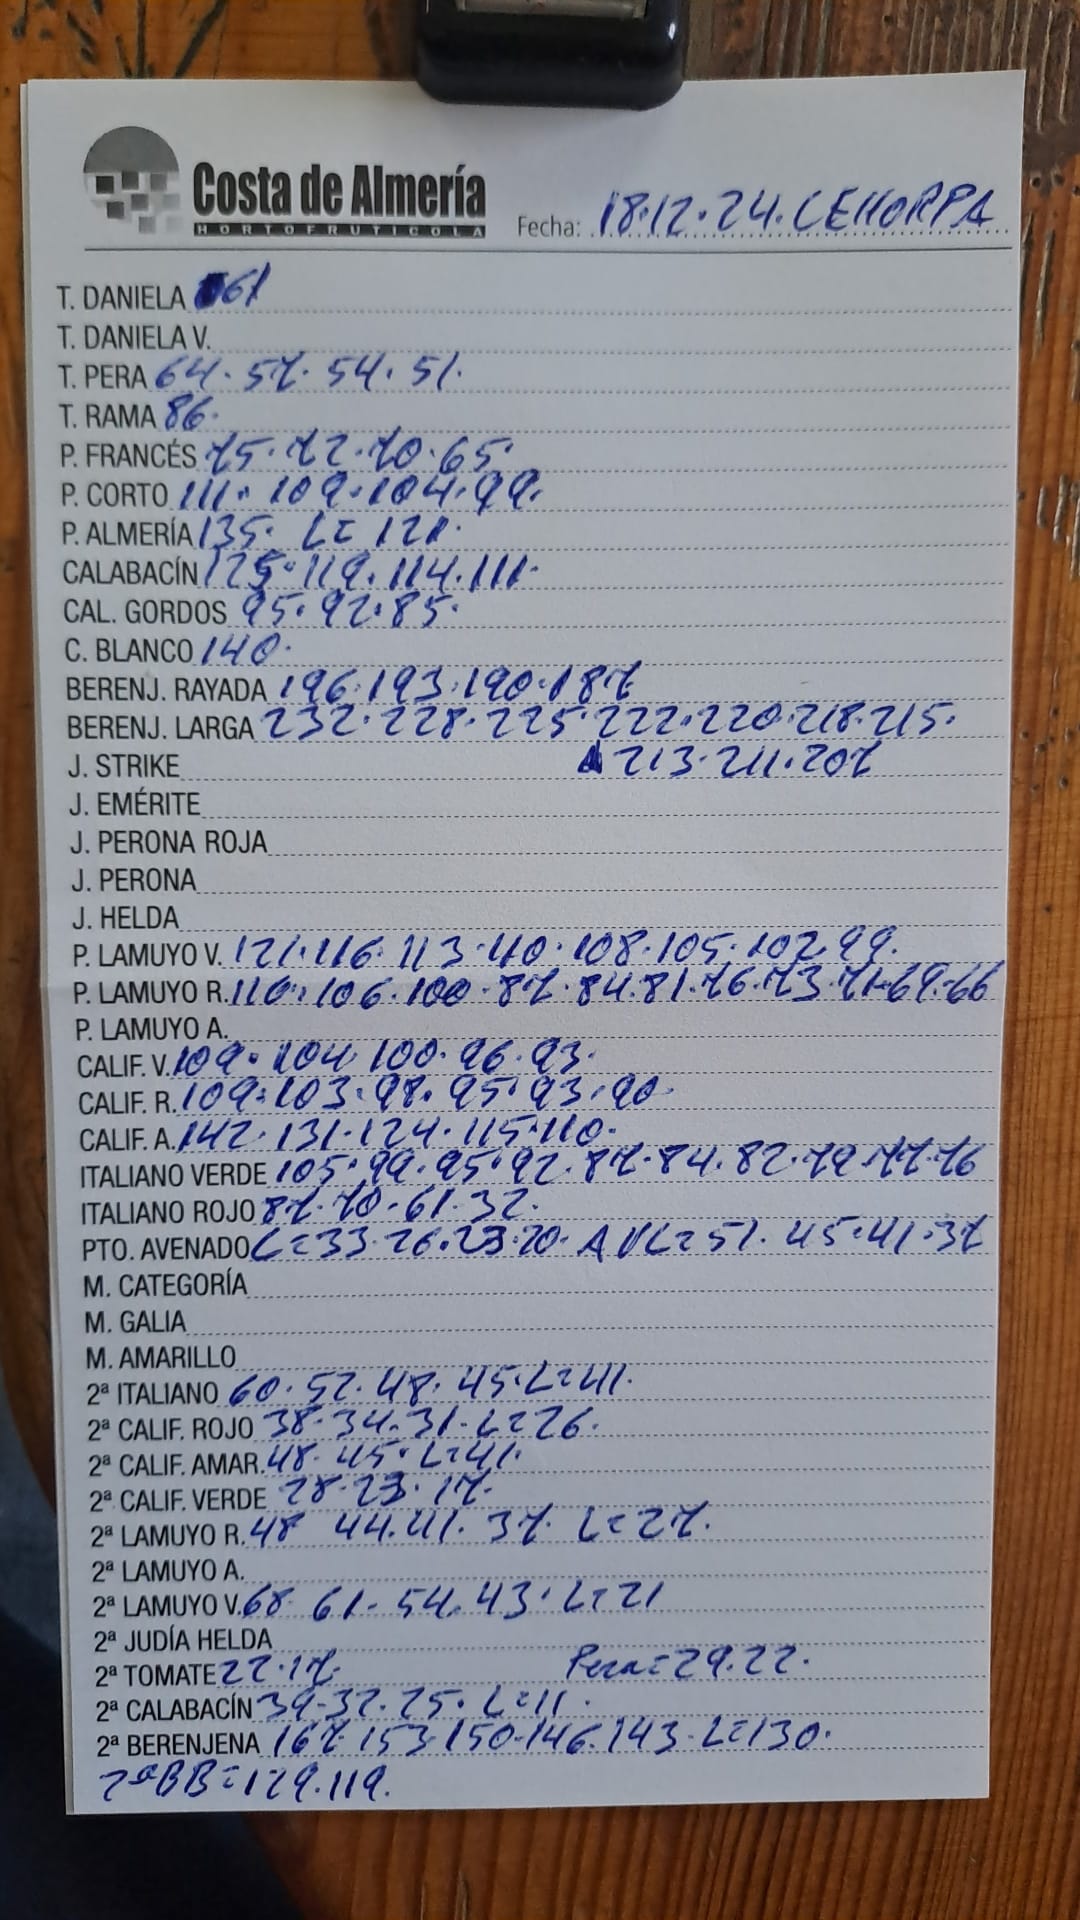 Costa de Almería
HORTOFRUTICOLA
Fecha: 18.12.24. CEHORPA
T. DANIELA 61
T. DANIELA V.
T. PERA 64. 57. 54. 51.
T. RAMA 86.
P. FRANCÉS 75. 72. 70. 65.
P. CORTO 111. 109. 104. 99.
P. ALMERÍA 135. L= 121.
CALABACÍN 125. 119. 114. 111.
CAL. GORDOS 95. 92. 85.
C. BLANCO 140.
BERENJ. RAYADA 196. 193. 190. 187
BERENJ. LARGA 232. 228. 225. 222. 220. 218. 215.
J. STRIKE 213. 211. 207
J. EMÉRITE
J. PERONA ROJA
J. PERONA
J. HELDA
P. LAMUYO V. 121. 116. 113. 110. 108. 105. 102. 99.
P. LAMUYO R. 110. 106. 100. 87. 84. 81. 76. 73. 71. 69. 66
P. LAMUYO A.
CALIF. V. 109. 104 100. 96. 93.
CALIF. R. 109. 103. 98. 95. 93. 90.
CALIF. A. 142. 131. 124. 115. 110.
ITALIANO VERDE 105. 99. 95. 92. 87. 84. 82. 79. 77. 76
ITALIANO ROJO 87. 70. 61. 32.
PTO. AVENADO L=33. 26. 23. 20. A VL=51. 45. 41. 37
M. CATEGORÍA
M. GALIA
M. AMARILLO
2ª ITALIANO 60. 52. 48. 45. L=41.
2ª CALIF. ROJO 38. 34. 31. L=26.
2ª CALIF. AMAR. 48. 45. L=41.
2ª CALIF. VERDE 28. 23. 17.
2ª LAMUYO R. 48 44. 41. 37. L=27.
2ª LAMUYO A.
2ª LAMUYO V. 68 61. 54. 43. L=21
2ª JUDÍA HELDA
2ª TOMATE 22. 17. Pera=29. 22.
2ª CALABACÍN 39. 32. 25. L=11.
2ª BERENJENA 167. 153. 150. 146. 143. L=130.
2ª BB=129. 119.